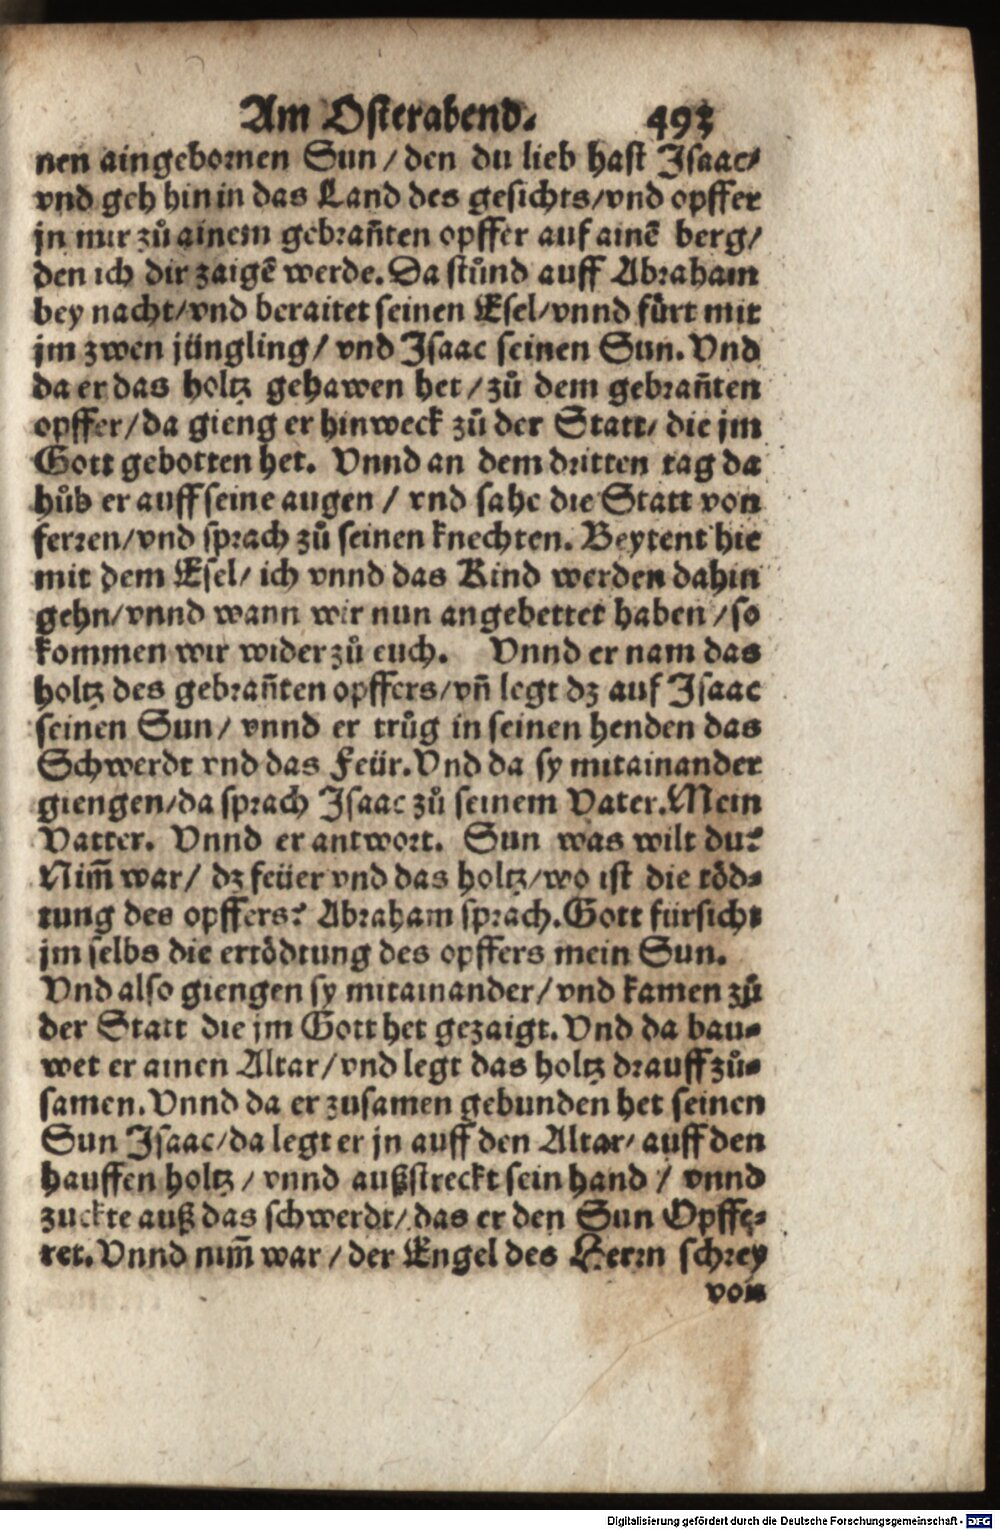 Am Osterabend. 493
nen aingebornen Sun / den du lieb hast Jsaac/
vnd geh hin in das Land des gesichts/vnd opffer
jn mir zů ainem gebrañten opffer auf ainē berg/
den ich dir zaigē werde. Da stůnd auff Abraham
bey nacht/vnd beraitet seinen Esel/vnnd fůrt mit
jm zwen jüngling / vnd Jsaac seinen Sun. Vnd
da er das holtz gehawen het / zů dem gebrañten
opffer/da gieng er hinweck zů der Statt/ die jm
Gott gebotten het. Vnnd an dem dritten tag da
hůb er auff seine augen / vnd sahe die Statt von
ferren/vnd sprach zů seinen knechten. Beytent hie
mit dem Esel/ ich vnnd das Kind werden dahin
gehn/vnnd wann wir nun angebettet haben / so
kommen wir wider zů euch. Vnnd er nam das
holtz des gebrañten opffers/vñ legt dz auf Jsaac
seinen Sun / vnnd er trůg in seinen henden das
Schwerdt vnd das Feür. Vnd da sy mitainander
giengen/da sprach Jsaac zů seinem Vater. Mein
Vatter. Vnnd er antwort. Sun was wilt du?
Nim̃ war / dz feüer vnd das holtz/wo ist die töd-
tung des opffers? Abraham sprach. Gott fürsicht
jm selbs die ertödtung des opffers mein Sun.
Vnd also giengen sy mitainander/vnd kamen zů
der Statt die jm Gott het gezaigt. Vnd da bau-
wet er ainen Altar/vnd legt das holtz drauff zů-
samen. Vnnd da er zusamen gebunden het seinen
Sun Jsaac/da legt er jn auff den Altar/ auff den
hauffen holtz / vnnd außstreckt sein hand / vnnd
zuckte auß das schwerdt/das er den Sun Opffe-
ret. Vnnd nim̃ war / der Engel des Herrn schrey
von
Digitalisierung gefördert durch die Deutsche Forschungsgemeinschaft - DFG